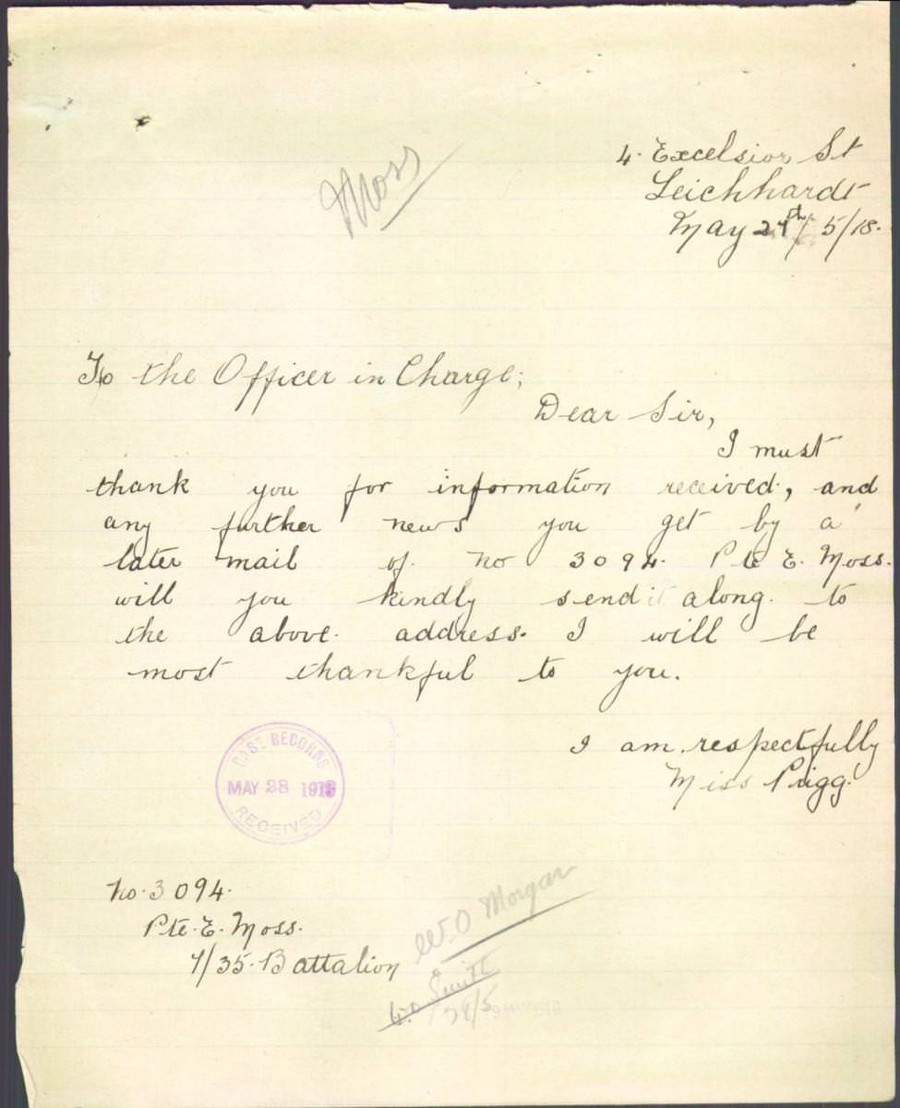 Moss
4. Excelsior St
Leichhardt
May 24th/5/18.
To the Officer in Charge;
Dear Sir,
I must
thank you for information received, and
any further news you get by a
later mail of No 3094. Pte E. Moss.
will you kindly send it along. to
the above. address. I will be
most thankful to you.
I am respectfully
Miss Prigg.
BASE RECORDS
MAY 28 1918
RECEIVED
No. 3094.
Pte. E. Moss.
7/35. Battalion
W.O Morgan
W.O Smith
29/5